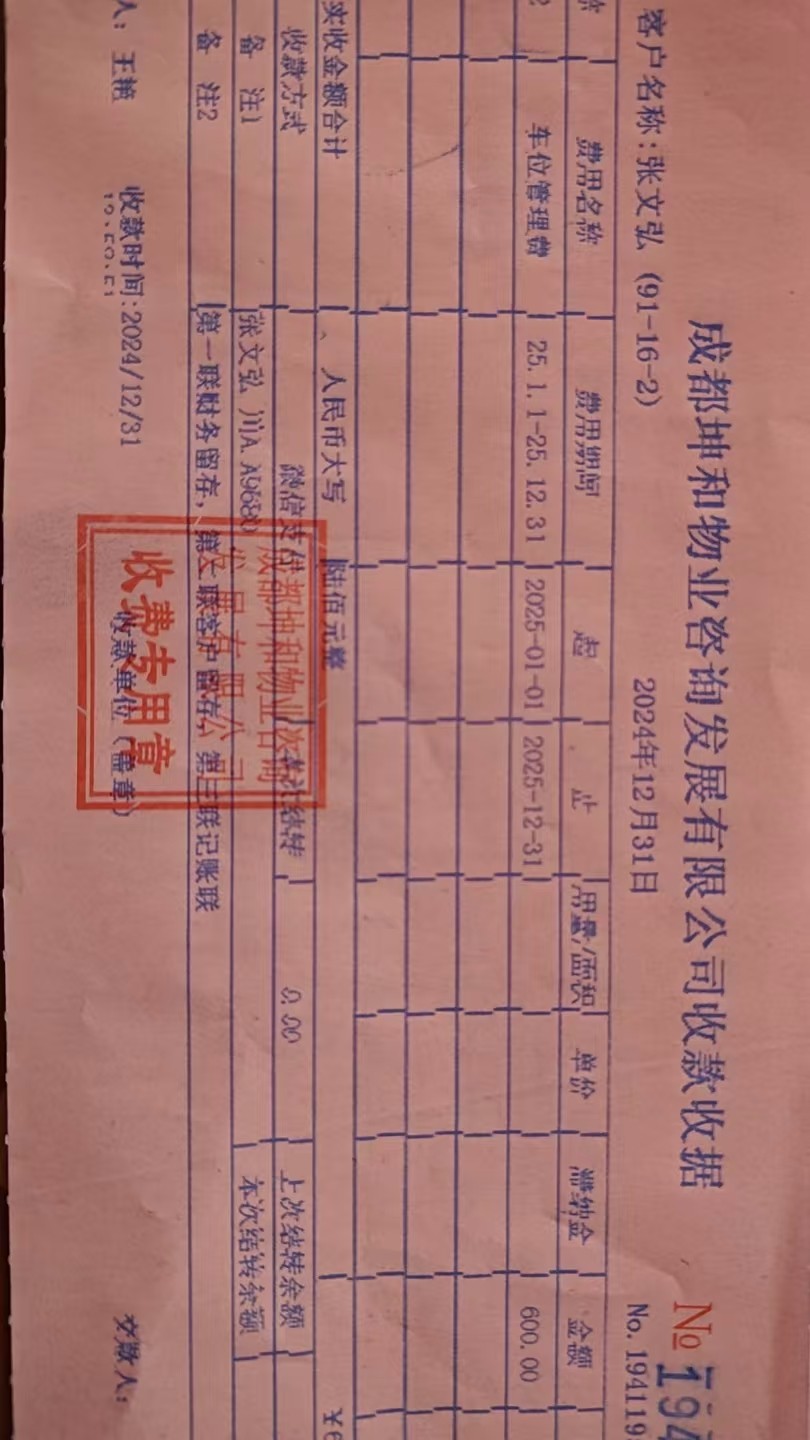 成都坤和物业咨询发展有限公司收款收据
№ 194
客户名称:张文弘 (91-16-2)
2024年12月31日
No. 194119
费用名称 费用期间 起 止 用量/面积 单价 滞纳金 金额
车位管理费 25.1.1-25.12.31 2025-01-01 2025-12-31 600.00
实收金额合计 、人民币大写 陆佰元整 ¥6
收款方式 微信支付 结转 0.00 上次结转余额
备 注1 张文弘 川A 本次结转余额
备 注2 第一联财务留存,第二联客户留存,第三联记账联
人: 王艳 收款时间:2024/12/31 收款单位(盖章) 交款人:
12:52:51
成都坤和物业咨询
发展有限公司
收费专用章